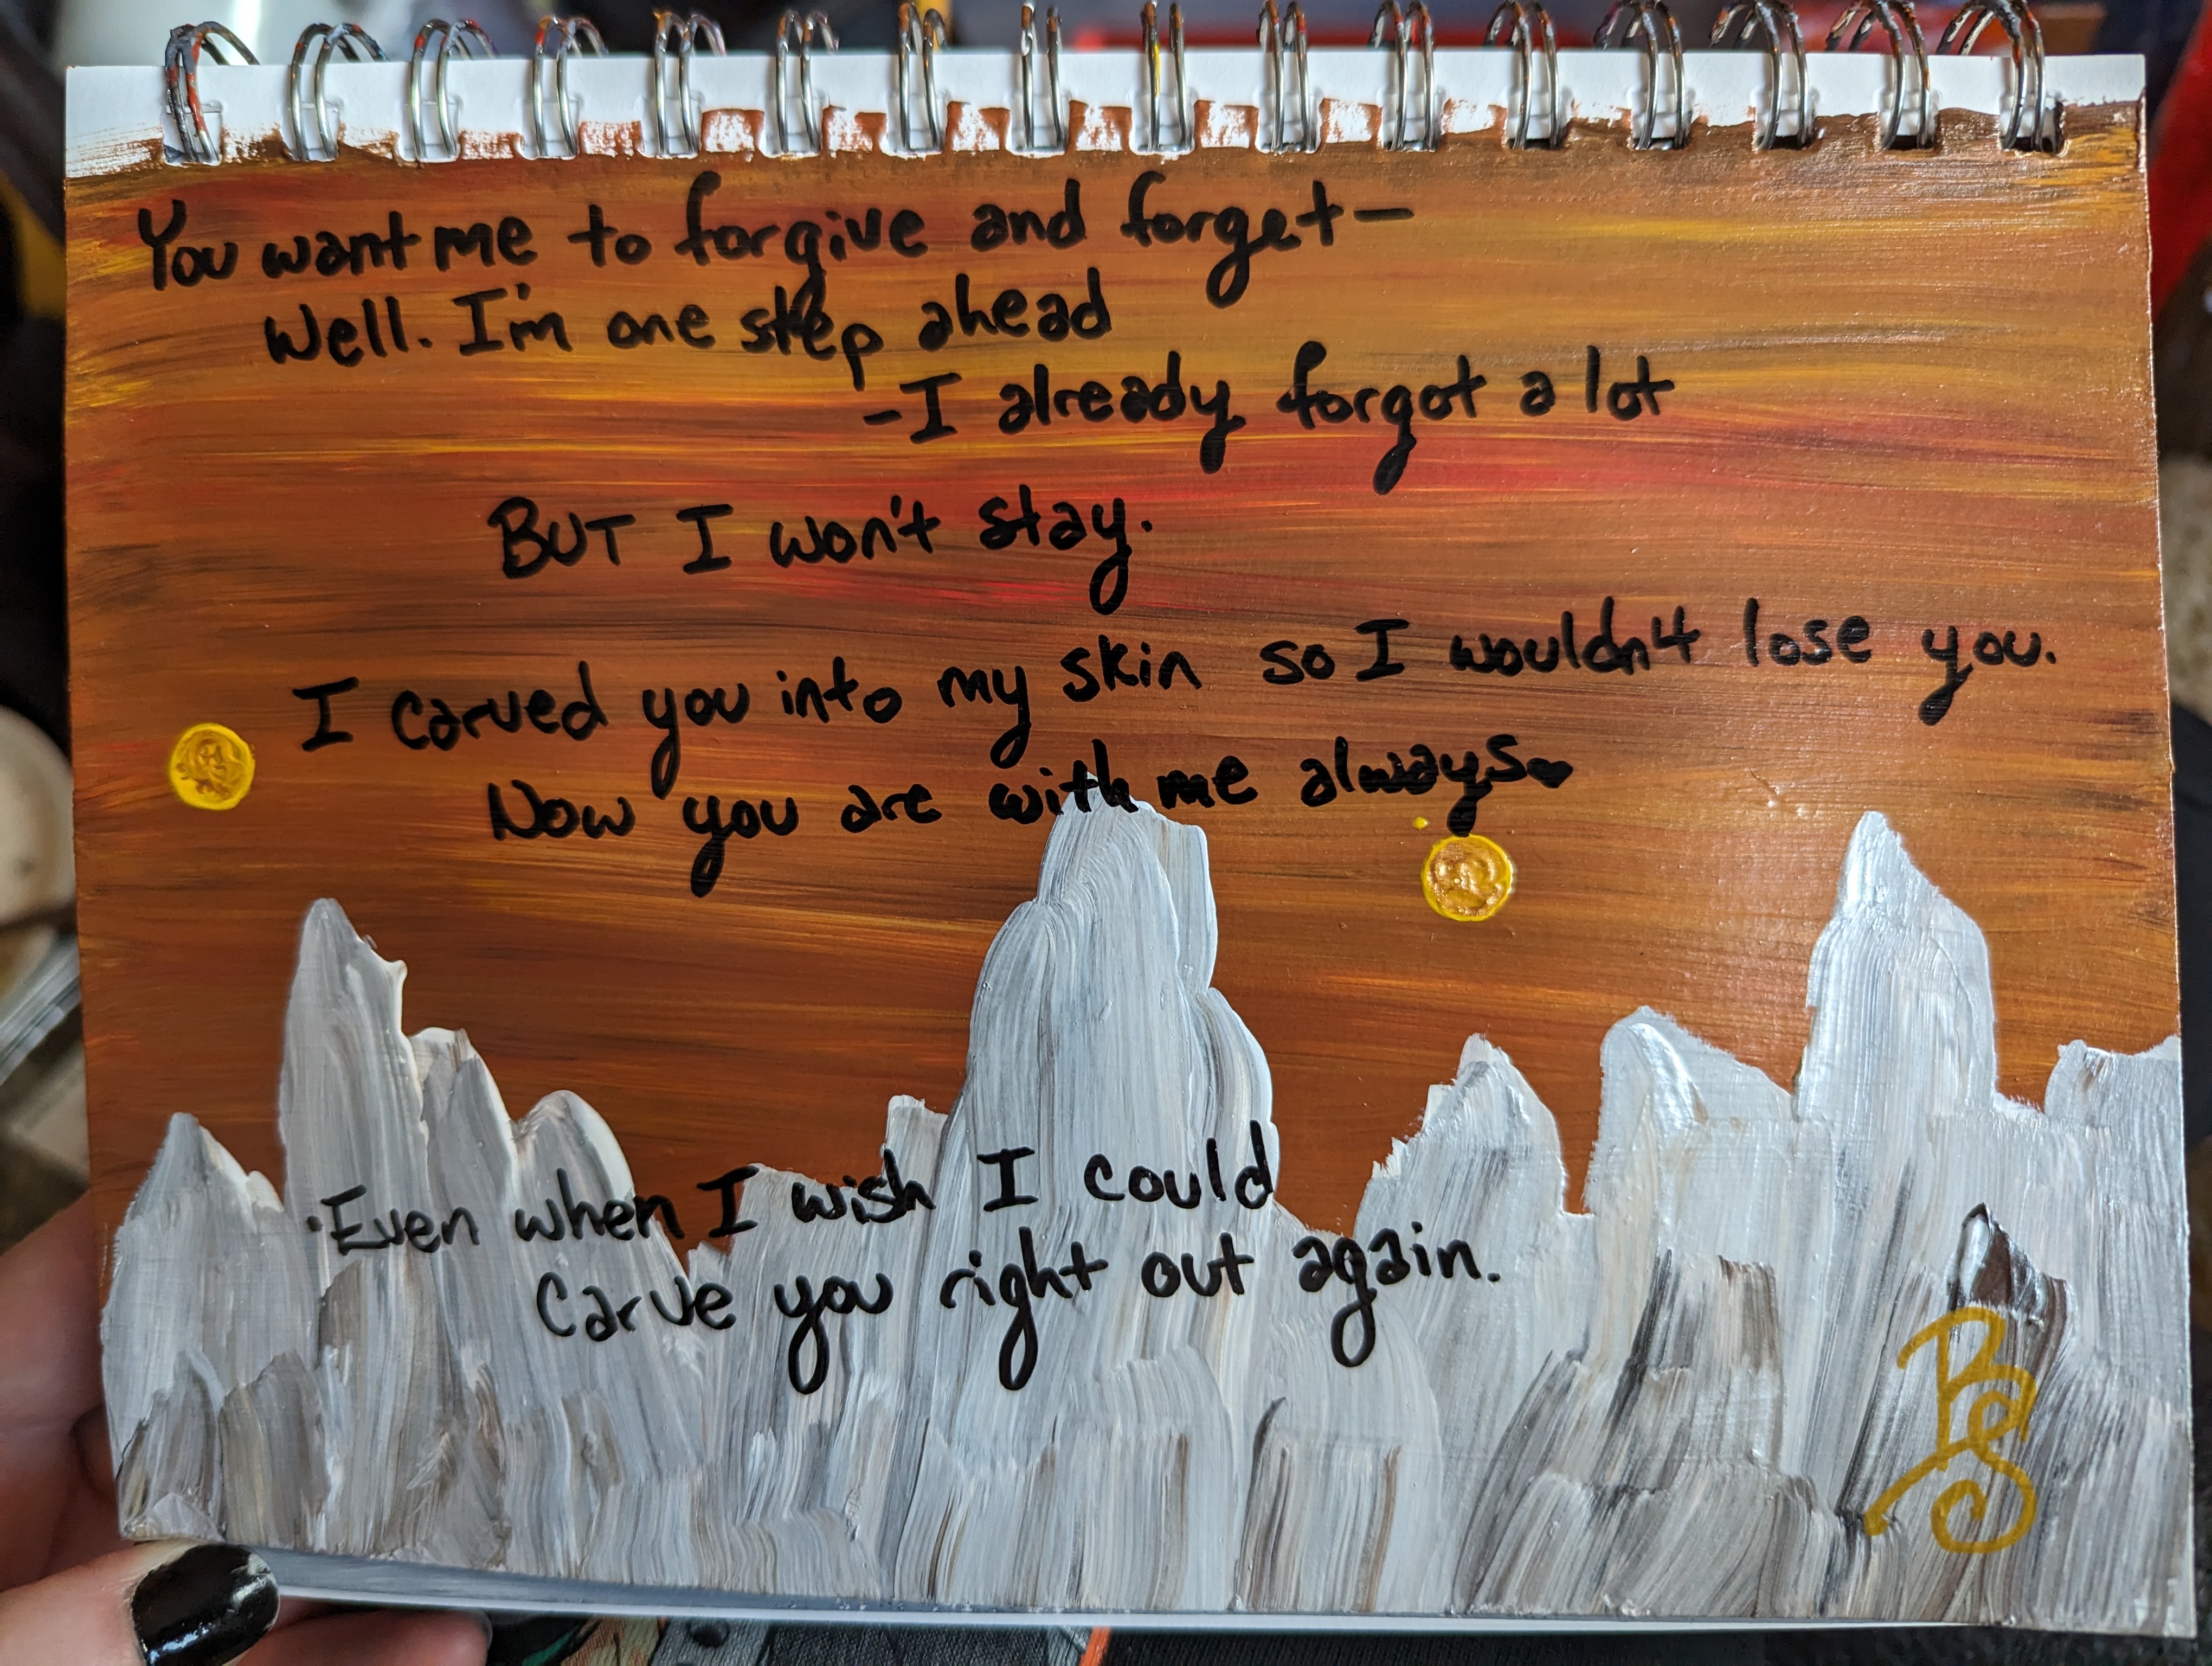 You want me to forgive and forget—
Well. I'm one step ahead
-I already forgot a lot
BUT I won't stay.
I carved you into my skin so I wouldn't lose you.
Now you are with me always♥
·Even when I wish I could
Carve you right out again.